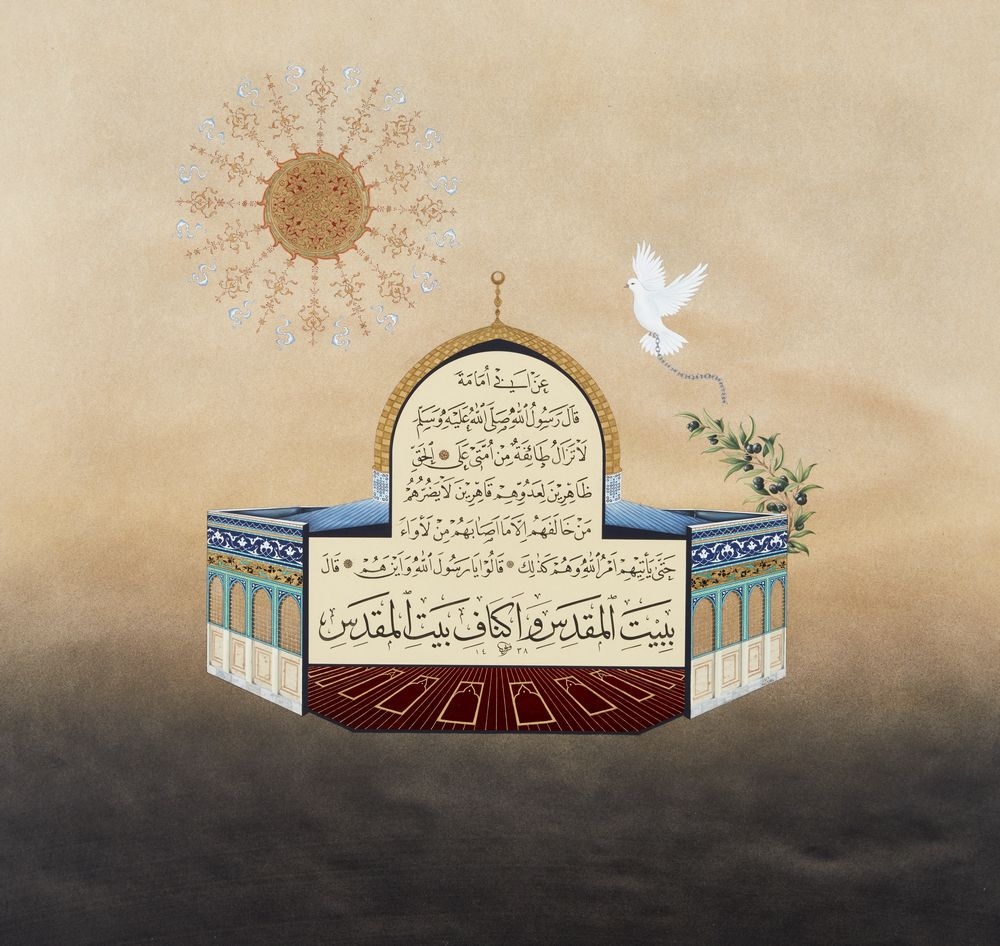 عَنْ اَبِى اُمَامَةَ
قَالَ رَسُولُ اللّٰهِ صَلَّى اللّٰهُ عَلَيْهِ وَسَلَّمَ
لَاتَزَالُ طَائِفَةٌ مِنْ اُمَّتِى عَلَى الْحَقِّ
ظَاهِرِينَ لِعَدُوِّهِمْ قَاهِرِينَ لَايَضُرُّهُمْ
مَنْ خَالَفَهُمْ اِلَّا مَا اَصَابَهُمْ مِنْ لَأْوَاءَ
حَتَّى يَأْتِيَهُمْ اَمْرُ اللّٰهِ وَهُمْ كَذٰلِكَ قَالُوا يَا رَسُولَ اللّٰهِ وَاَيْنَ هُمْ قَالَ
بِبَيْتِ الْمَقْدِسِ وَاَكْنَافِ بَيْتِ الْمَقْدِسِ
١٤٣٨